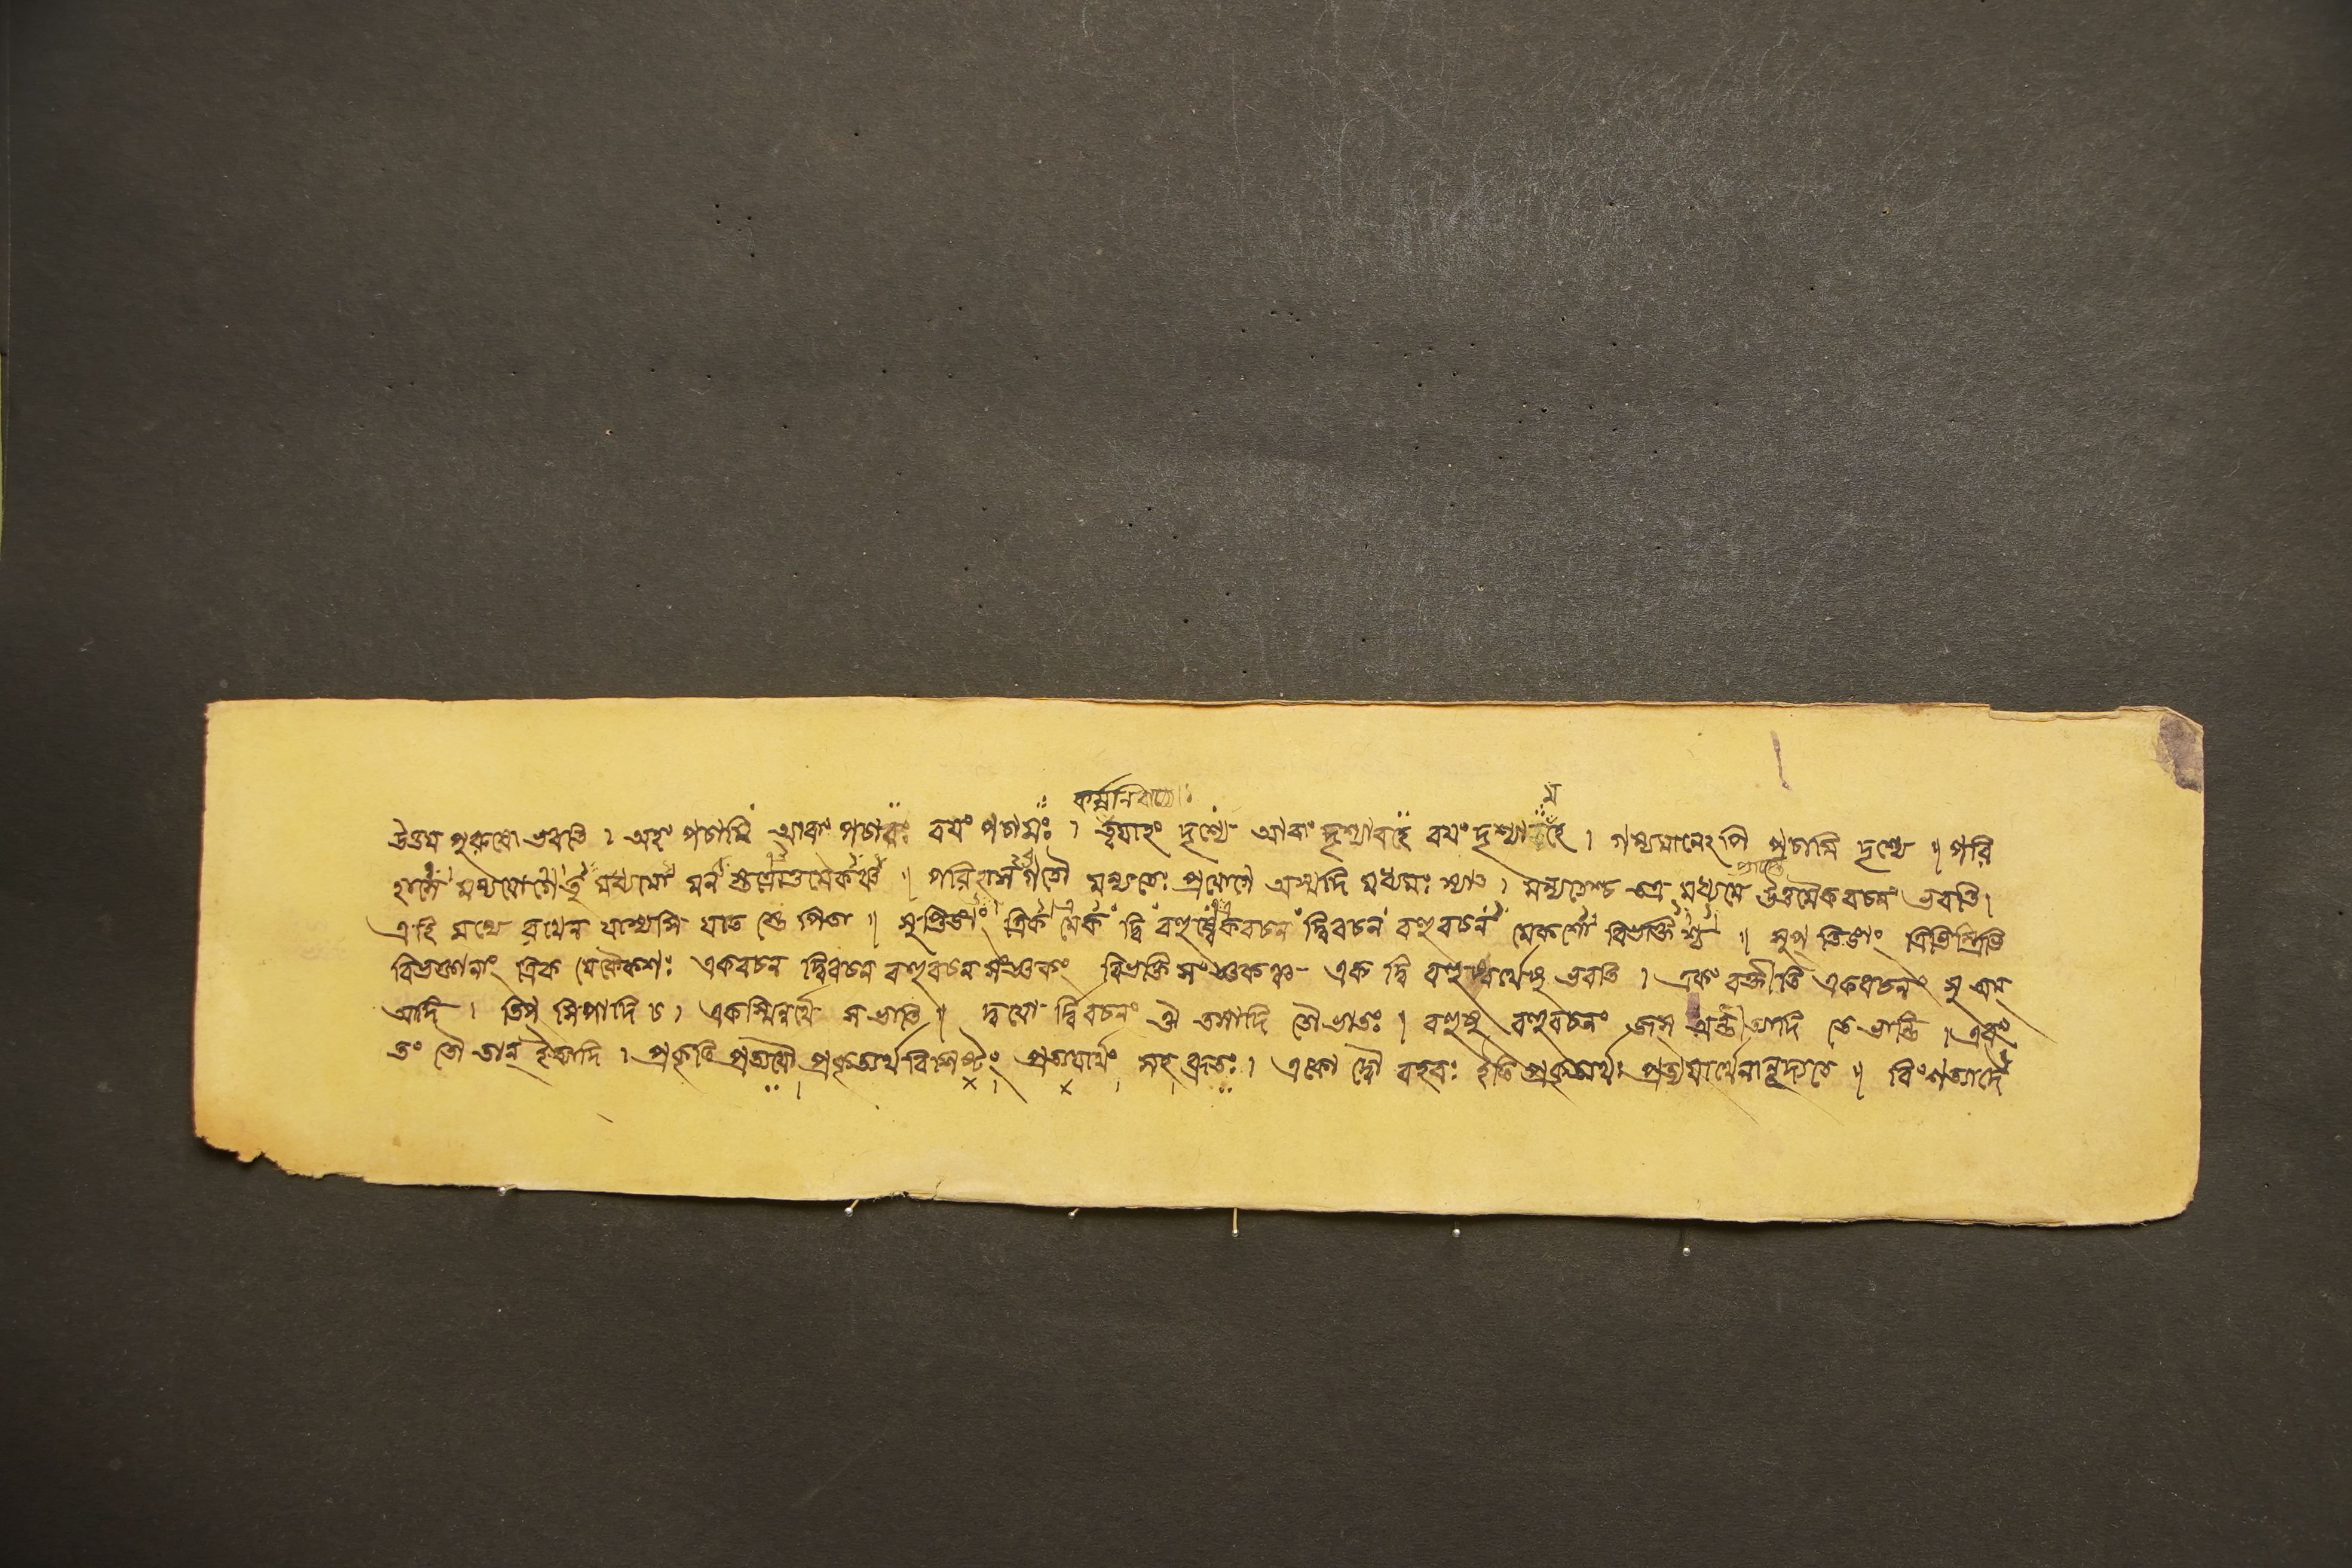 কর্ম্মনি বাচ্যেঃ
ম
উত্তম পুরুষো ভবতি । অহং পচামি আবাং পচাবঃ বয়ং পচামঃ । ত্বয়াহং দৃশ্যে আবাং দৃশ্যাবহৈ বয়ং দৃশ্যামহৈ । গম্যমানেঽপি পচামি দৃশ্যে ॥ পরি
হাসে মন্যযোগে তু মধ্যমো মন ॥ পরিহাস গতৌ মন্যতেঃ প্রয়োগে অস্মদি মধ্যমঃ স্যাৎ । মন্যতেশ্চ মধ্যমে উত্তমৈকবচনং ভবতি ।
এহি মন্যে রথেন যাস্যসি যাত স্তে পিতা ॥ সুপ্তিঙাং ত্রিক মেকং দ্বি বহুষ্বেকবচন দ্বিবচন বহুবচন মেকশো বিভক্তিশ্চ ॥ সুপ্ তিঙাং ত্রিভিস্ত্রিভি
বিভক্তানাং ত্রিক মেকৈকশঃ একবচন দ্বিবচন বহুবচন সংজ্ঞকং বিভক্তি সংজ্ঞকঞ্চ এক দ্বি বহুষ্বর্থেষু ভবতি । একং বক্তীতি একবচনং সু অম্
আদি । তিপ্ সিপাদি চ । একস্মিন্নর্থে স ভাতি ॥ দ্বয়ো র্দ্বিবচনং ঔ তসাদি তৌ ভাতঃ । বহুষু বহুবচনং জস্ অন্তীত্যাদি তে ভান্তি । এবং
তং তৌ তান্ ইত্যাদি । প্রকৃতি প্রত্যয়ৌ প্রকৃত্যর্থ বিশিষ্টং প্রত্যয়ার্থং সহ ব্রূতঃ । একো দ্বৌ বহবঃ ইতি প্রকৃত্যর্থঃ প্রত্যয়ার্থেনানূদ্যতে ॥ বিংশত্যাদে